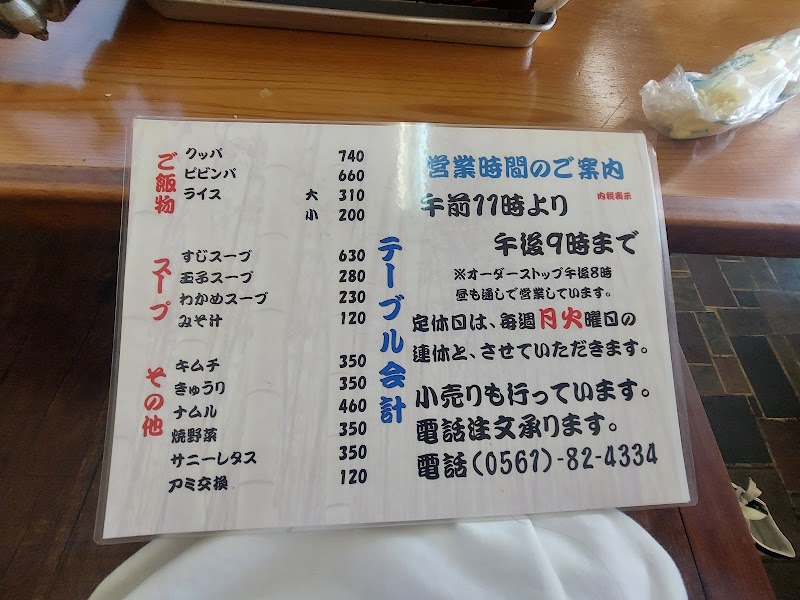 ご飯物
クッパ 740
ビビンバ 660
ライス 大 310
小 200
スープ
すじスープ 630
玉子スープ 280
わかめスープ 230
みそ汁 120
その他
キムチ 350
きゅうり 350
ナムル 460
焼野菜 350
サニーレタス 350
アミ交換 120
テーブル会計
営業時間のご案内
内税表示
午前11時より
午後9時まで
※オーダーストップ午後8時
昼も通しで営業しています。
定休日は、毎週月火曜日の
連休と、させていただきます。
小売りも行っています。
電話注文承ります。
電話(0561)-82-4334